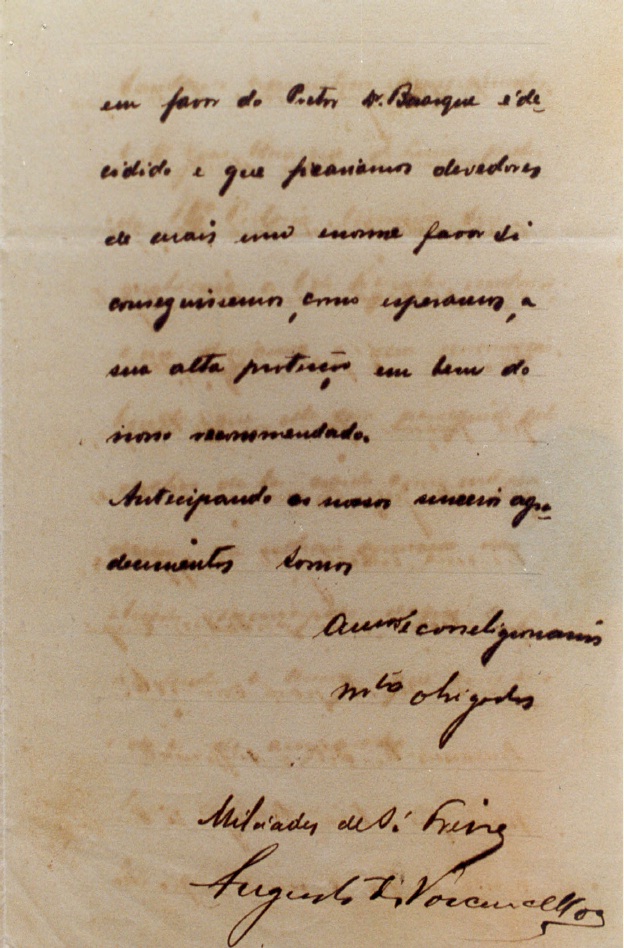 em favor do Pretor Dr. Buarque é de-
cidido e que ficariamos devedores
de mais um enorme favor si
conseguissemos, como esperamos, a
sua alta proteção em bem do
nosso recommendado.
Antecipando os nossos sinceros agra-
decimentos somos
Amos e correligionarios
mto obrigados
Milciades de Sá Freire
Augusto de Vasconcellos